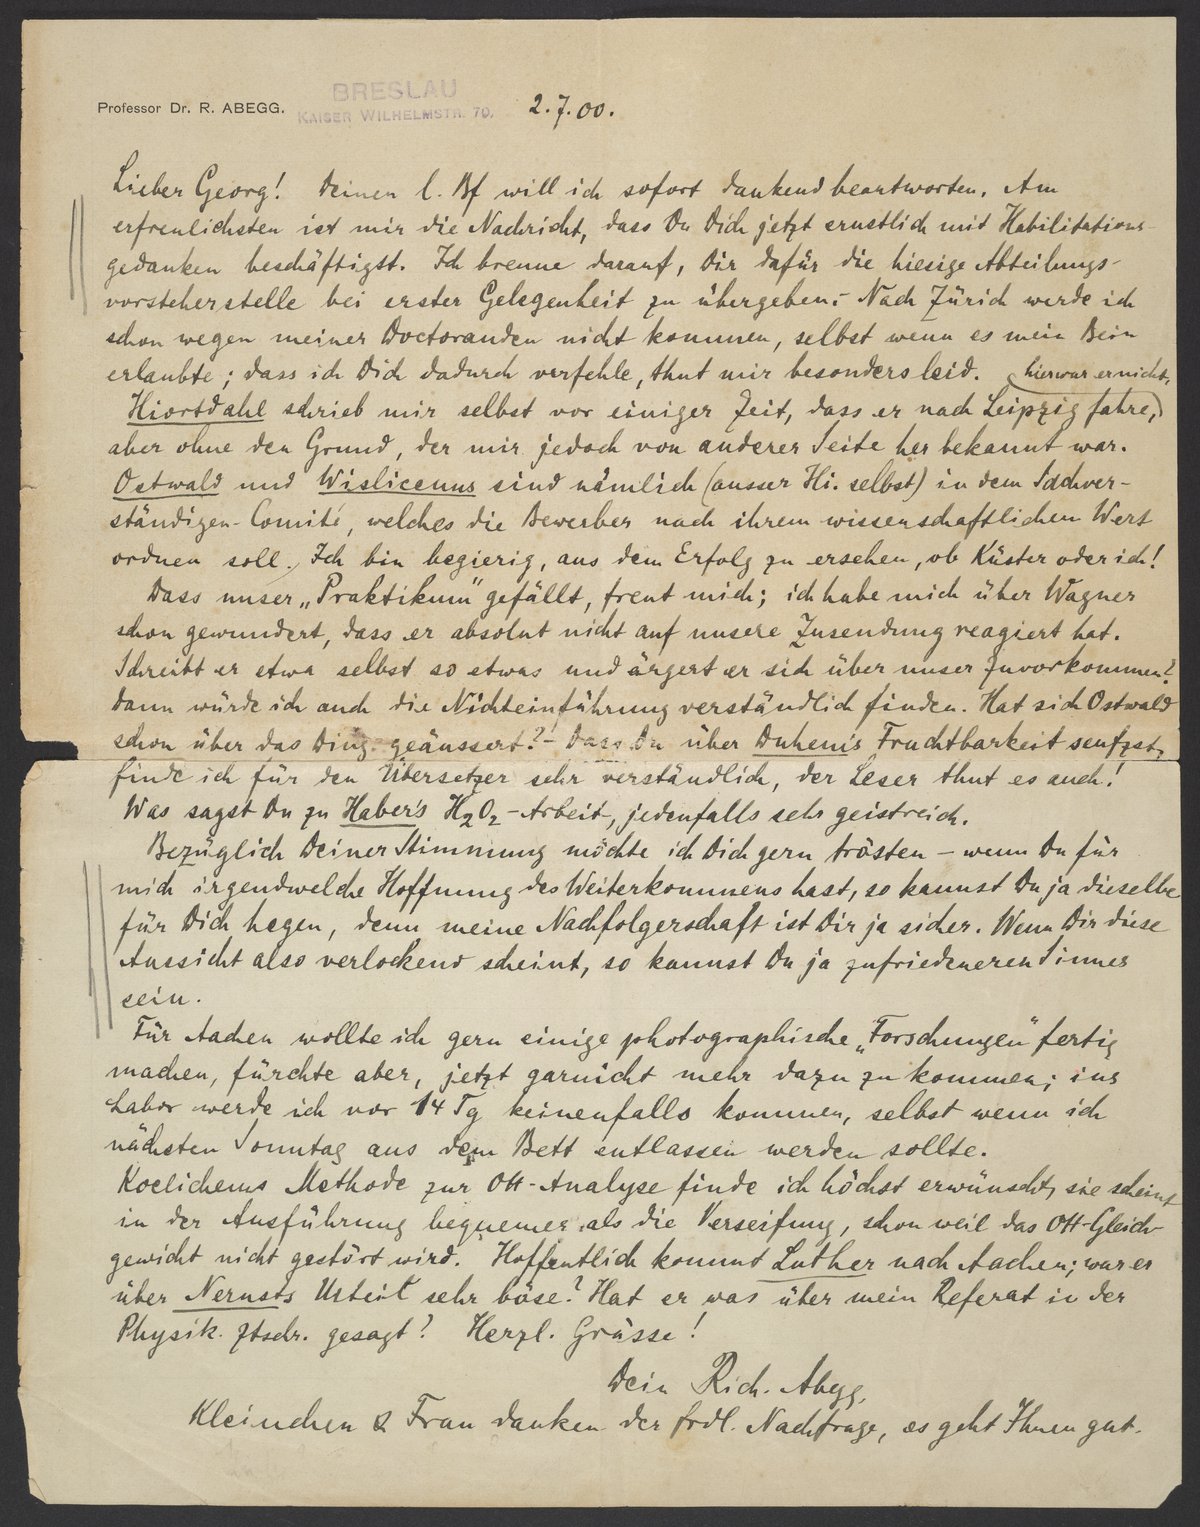 Professor Dr. R. ABEGG.
BRESLAU
KAISER WILHELMSTR. 70.
2.7.00.
Lieber Georg! Deinen l. Bf will ich sofort dankend beantworten. Am
erfreulichsten ist mir die Nachricht, dass Du Dich jetzt ernstlich mit Habilitations-
gedanken beschäftigst. Ich brenne darauf, Dir dafür die hiesige Abteilungs-
vorsteherstelle bei erster Gelegenheit zu übergeben. – Nach Zürich werde ich
schon wegen meiner Doctoranden nicht kommen, selbst wenn es mein Bein
erlaubte; dass ich Dich dadurch verfehle, thut mir besonders leid.
hier war er nicht,
Hiortdahl schrieb mir selbst vor einiger Zeit, dass er nach Leipzig fahre,
aber ohne den Grund, der mir jedoch von anderer Seite her bekannt war.
Ostwald und Wislicenus sind nämlich (ausser Hi. selbst) in dem Sachver-
ständigen-Comité, welches die Bewerber nach ihrem wissenschaftlichen Wert
ordnen soll. Ich bin begierig, aus dem Erfolg zu ersehen, ob Küster oder ich!
Dass unser „Praktikum" gefällt, freut mich; ich habe mich über Wagner
schon gewundert, dass er absolut nicht auf unsere Zusendung reagiert hat.
Schreibt er etwa selbst so etwas und ärgert er sich über unser Zuvorkommen?
dann würde ich auch die Nichteinführung verständlich finden. Hat sich Ostwald
schon über das Ding geäussert? – Dass Du über Duhem's Fruchtbarkeit seufzst,
finde ich für den Übersetzer sehr verständlich, der Leser thut es auch!
Was sagst Du zu Haber's H2O2-Arbeit, jedenfalls sehr geistreich.
Bezüglich Deiner Stimmung möchte ich Dich gern trösten – wenn Du für
mich irgendwelche Hoffnung des Weiterkommens hast, so kannst Du ja dieselbe
für Dich hegen, denn meine Nachfolgerschaft ist Dir ja sicher. Wenn Dir diese
Aussicht also verlockend scheint, so kannst Du ja zufriedeneren Sinnes
sein.
Für Aachen wollte ich gern einige photographische „Forschungen" fertig
machen, fürchte aber, jetzt garnicht mehr dazu zu kommen; ins
Labor werde ich vor 14 Tg keinenfalls kommen, selbst wenn ich
nächsten Sonntag aus dem Bett entlassen werden sollte.
Koelichens Methode zur OH-Analyse finde ich höchst erwünscht, sie scheint
in der Ausführung bequemer als die Verseifung, schon weil das OH-Gleich-
gewicht nicht gestört wird. Hoffentlich kommt Luther nach Aachen; war er
über Nernsts Urteil sehr böse? Hat er was über mein Referat in der
Physik. Ztschr. gesagt? Herzl. Grüsse!
Dein Rich. Abegg.
Kleinchen & Frau danken der frdl. Nachfrage, es geht Ihnen gut.